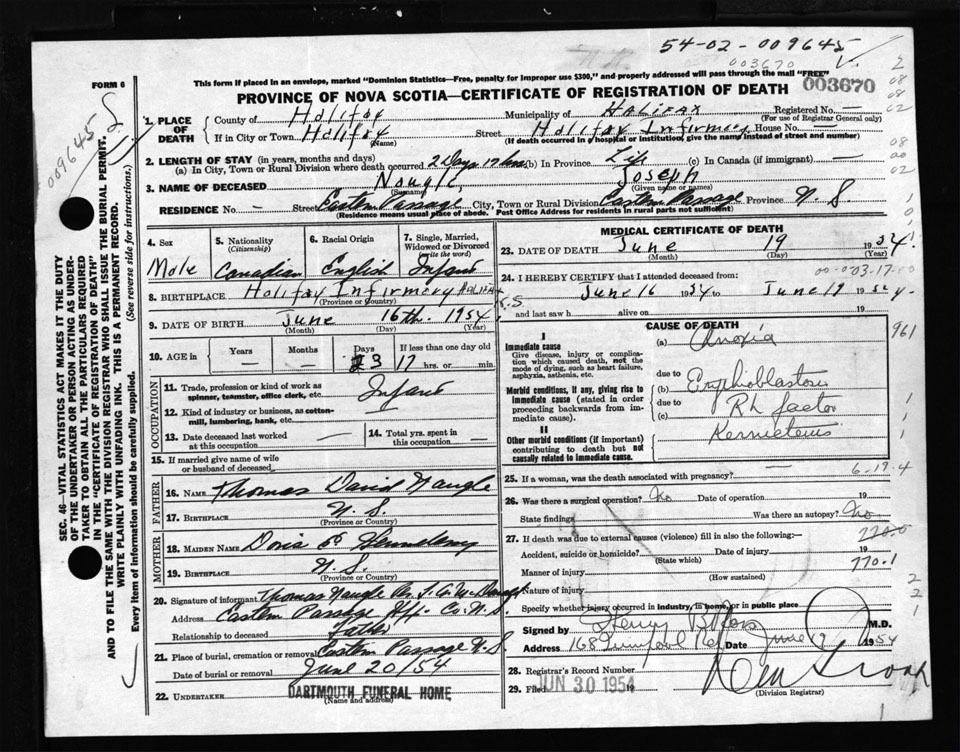 54-02-009645
003670
FORM 6
This form if placed in an envelope, marked "Dominion Statistics—Free, penalty for improper use $300," and properly addressed will pass through the mail "FREE"
003670
PROVINCE OF NOVA SCOTIA—CERTIFICATE OF REGISTRATION OF DEATH
009645
1. PLACE OF DEATH
County of Halifax Municipality of Halifax Registered No. —
(For use of Registrar General only)
If in City or Town Halifax Street Halifax Infirmary House No. —
(Name) (If death occurred in a hospital or institution, give the name instead of street and number)
2. LENGTH OF STAY (in years, months and days)
(a) In City, Town or Rural Division where death occurred 2 Days 17 hrs (b) In Province Life (c) In Canada (if immigrant) —
3. NAME OF DECEASED Naugle, Joseph
(Surname) (Given name or names)
RESIDENCE No. — Street Eastern Passage City, Town or Rural Division Eastern Passage Province N.S.
(Residence means usual place of abode. Post Office Address for residents in rural parts not sufficient)
4. Sex
Male
5. Nationality (Citizenship)
Canadian
6. Racial Origin
English
7. Single, Married, Widowed or Divorced (write the word)
Infant
8. BIRTHPLACE Halifax Infirmary Halifax N.S.
(Province or Country)
9. DATE OF BIRTH June 16th. 1954
(Month) (Day) (Year)
10. AGE in Years Months Days If less than one day old
3 17 hrs. or min.
OCCUPATION
11. Trade, profession or kind of work as spinner, teamster, office clerk, etc. Infant
12. Kind of industry or business, as cotton-mill, lumbering, bank, etc.
13. Date deceased last worked at this occupation —
14. Total yrs. spent in this occupation —
15. If married give name of wife or husband of deceased
FATHER
16. NAME Thomas David Naugle
17. BIRTHPLACE N.S.
(Province or Country)
MOTHER
18. MAIDEN NAME Doris
19. BIRTHPLACE N.S.
(Province or Country)
20. Signature of informant Thomas Naugle Per
Address Eastern Passage Hfx. Co. N.S.
Relationship to deceased Father
21. Place of burial, cremation or removal Eastern Passage N.S.
Date of burial or removal June 20/54
22. UNDERTAKER DARTMOUTH FUNERAL HOME
(Name and address)
MEDICAL CERTIFICATE OF DEATH
23. DATE OF DEATH June 19 1954
(Month) (Day) (Year)
24. I HEREBY CERTIFY that I attended deceased from:
June 16 1954 to June 19 1954
and last saw h alive on 19
CAUSE OF DEATH
I
Immediate cause
Give disease, injury or complication which caused death, not the mode of dying, such as heart failure, asphyxia, asthenia, etc.
(a) Anoxia
961
due to
Morbid conditions, if any, giving rise to immediate cause (stated in order proceeding backwards from immediate cause).
(b)
due to Rh factor
(c)
II
Other morbid conditions (if important) contributing to death but not causally related to immediate cause.
Kernicterus
6-19.4
25. If a woman, was the death associated with pregnancy? —
26. Was there a surgical operation? No Date of operation 19
State findings Was there an autopsy? No
27. If death was due to external causes (violence) fill in also the following:—
Accident, suicide or homicide? Date of injury 19
(State which)
770.1
Manner of injury
(How sustained)
Nature of injury
Specify whether injury occurred in industry, in home, or in public place
Signed by Henry B. Ross M.D.
Address 168 Date June 19 1954
28. Registrar's Record Number
29. Filed JUN 30 1954 19
(Division Registrar)
SEC. 46—VITAL STATISTICS ACT MAKES IT THE DUTY
OF THE UNDERTAKER OR PERSON ACTING AS UNDER-
TAKER TO OBTAIN ALL THE PARTICULARS REQUIRED
IN THE "CERTIFICATE OF REGISTRATION OF DEATH"
AND TO FILE THE SAME WITH THE DIVISION REGISTRAR WHO SHALL ISSUE THE BURIAL PERMIT.
WRITE PLAINLY WITH UNFADING INK. THIS IS A PERMANENT RECORD.
Every item of information should be carefully supplied. (See reverse side for instructions.)